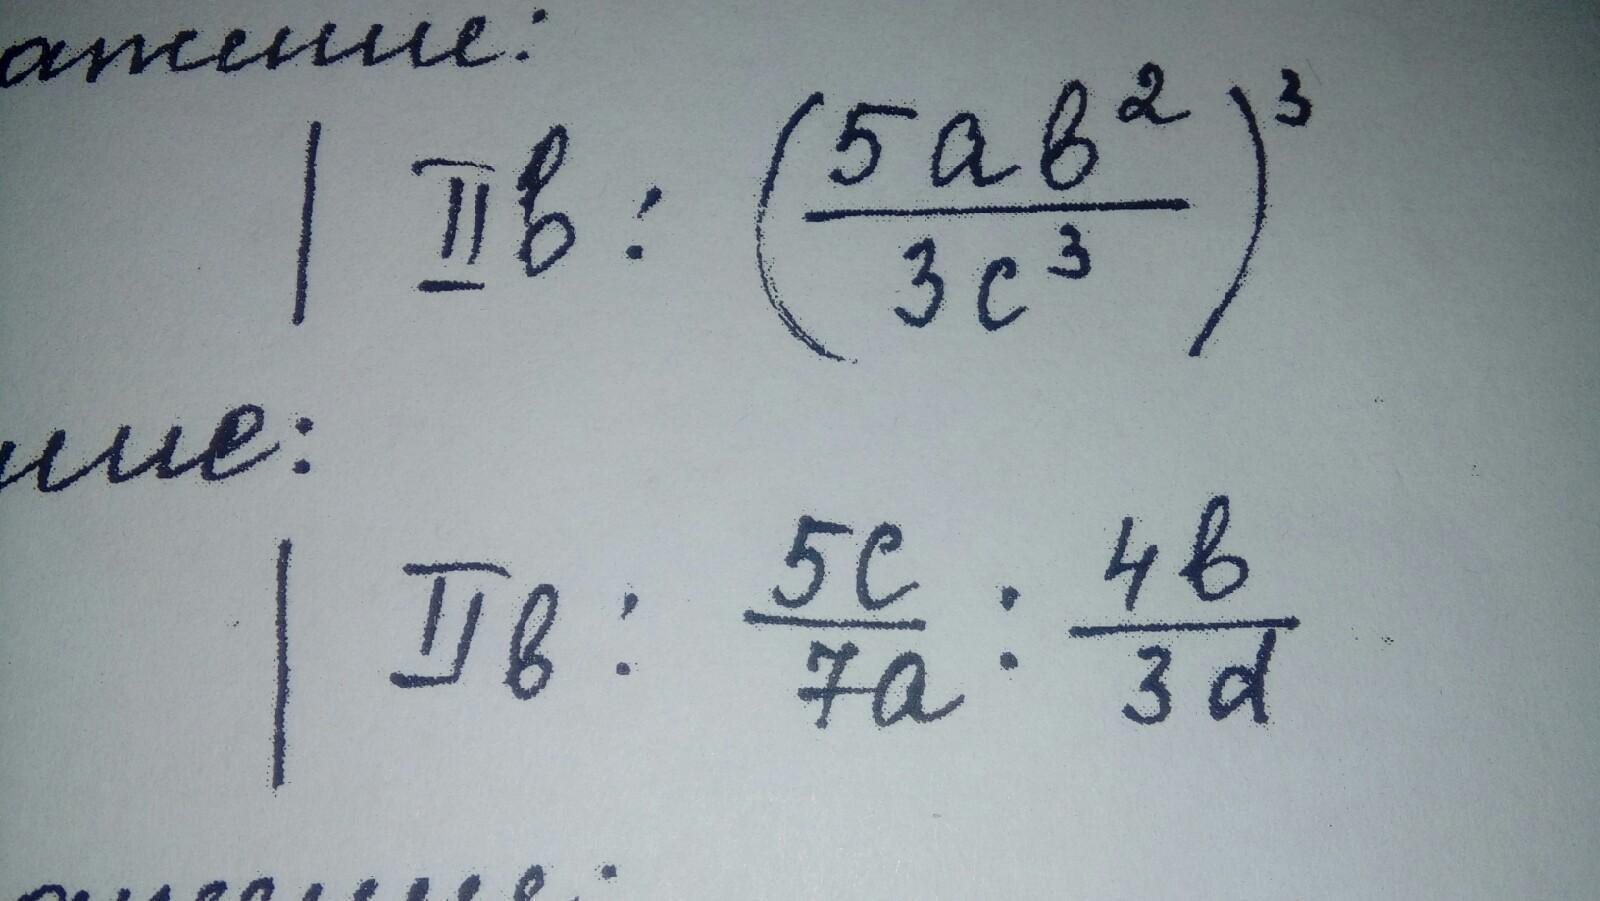 ажение:
IIв: (5ab²/3c³)³
ние:
IIв: 5c/7a : 4b/3d